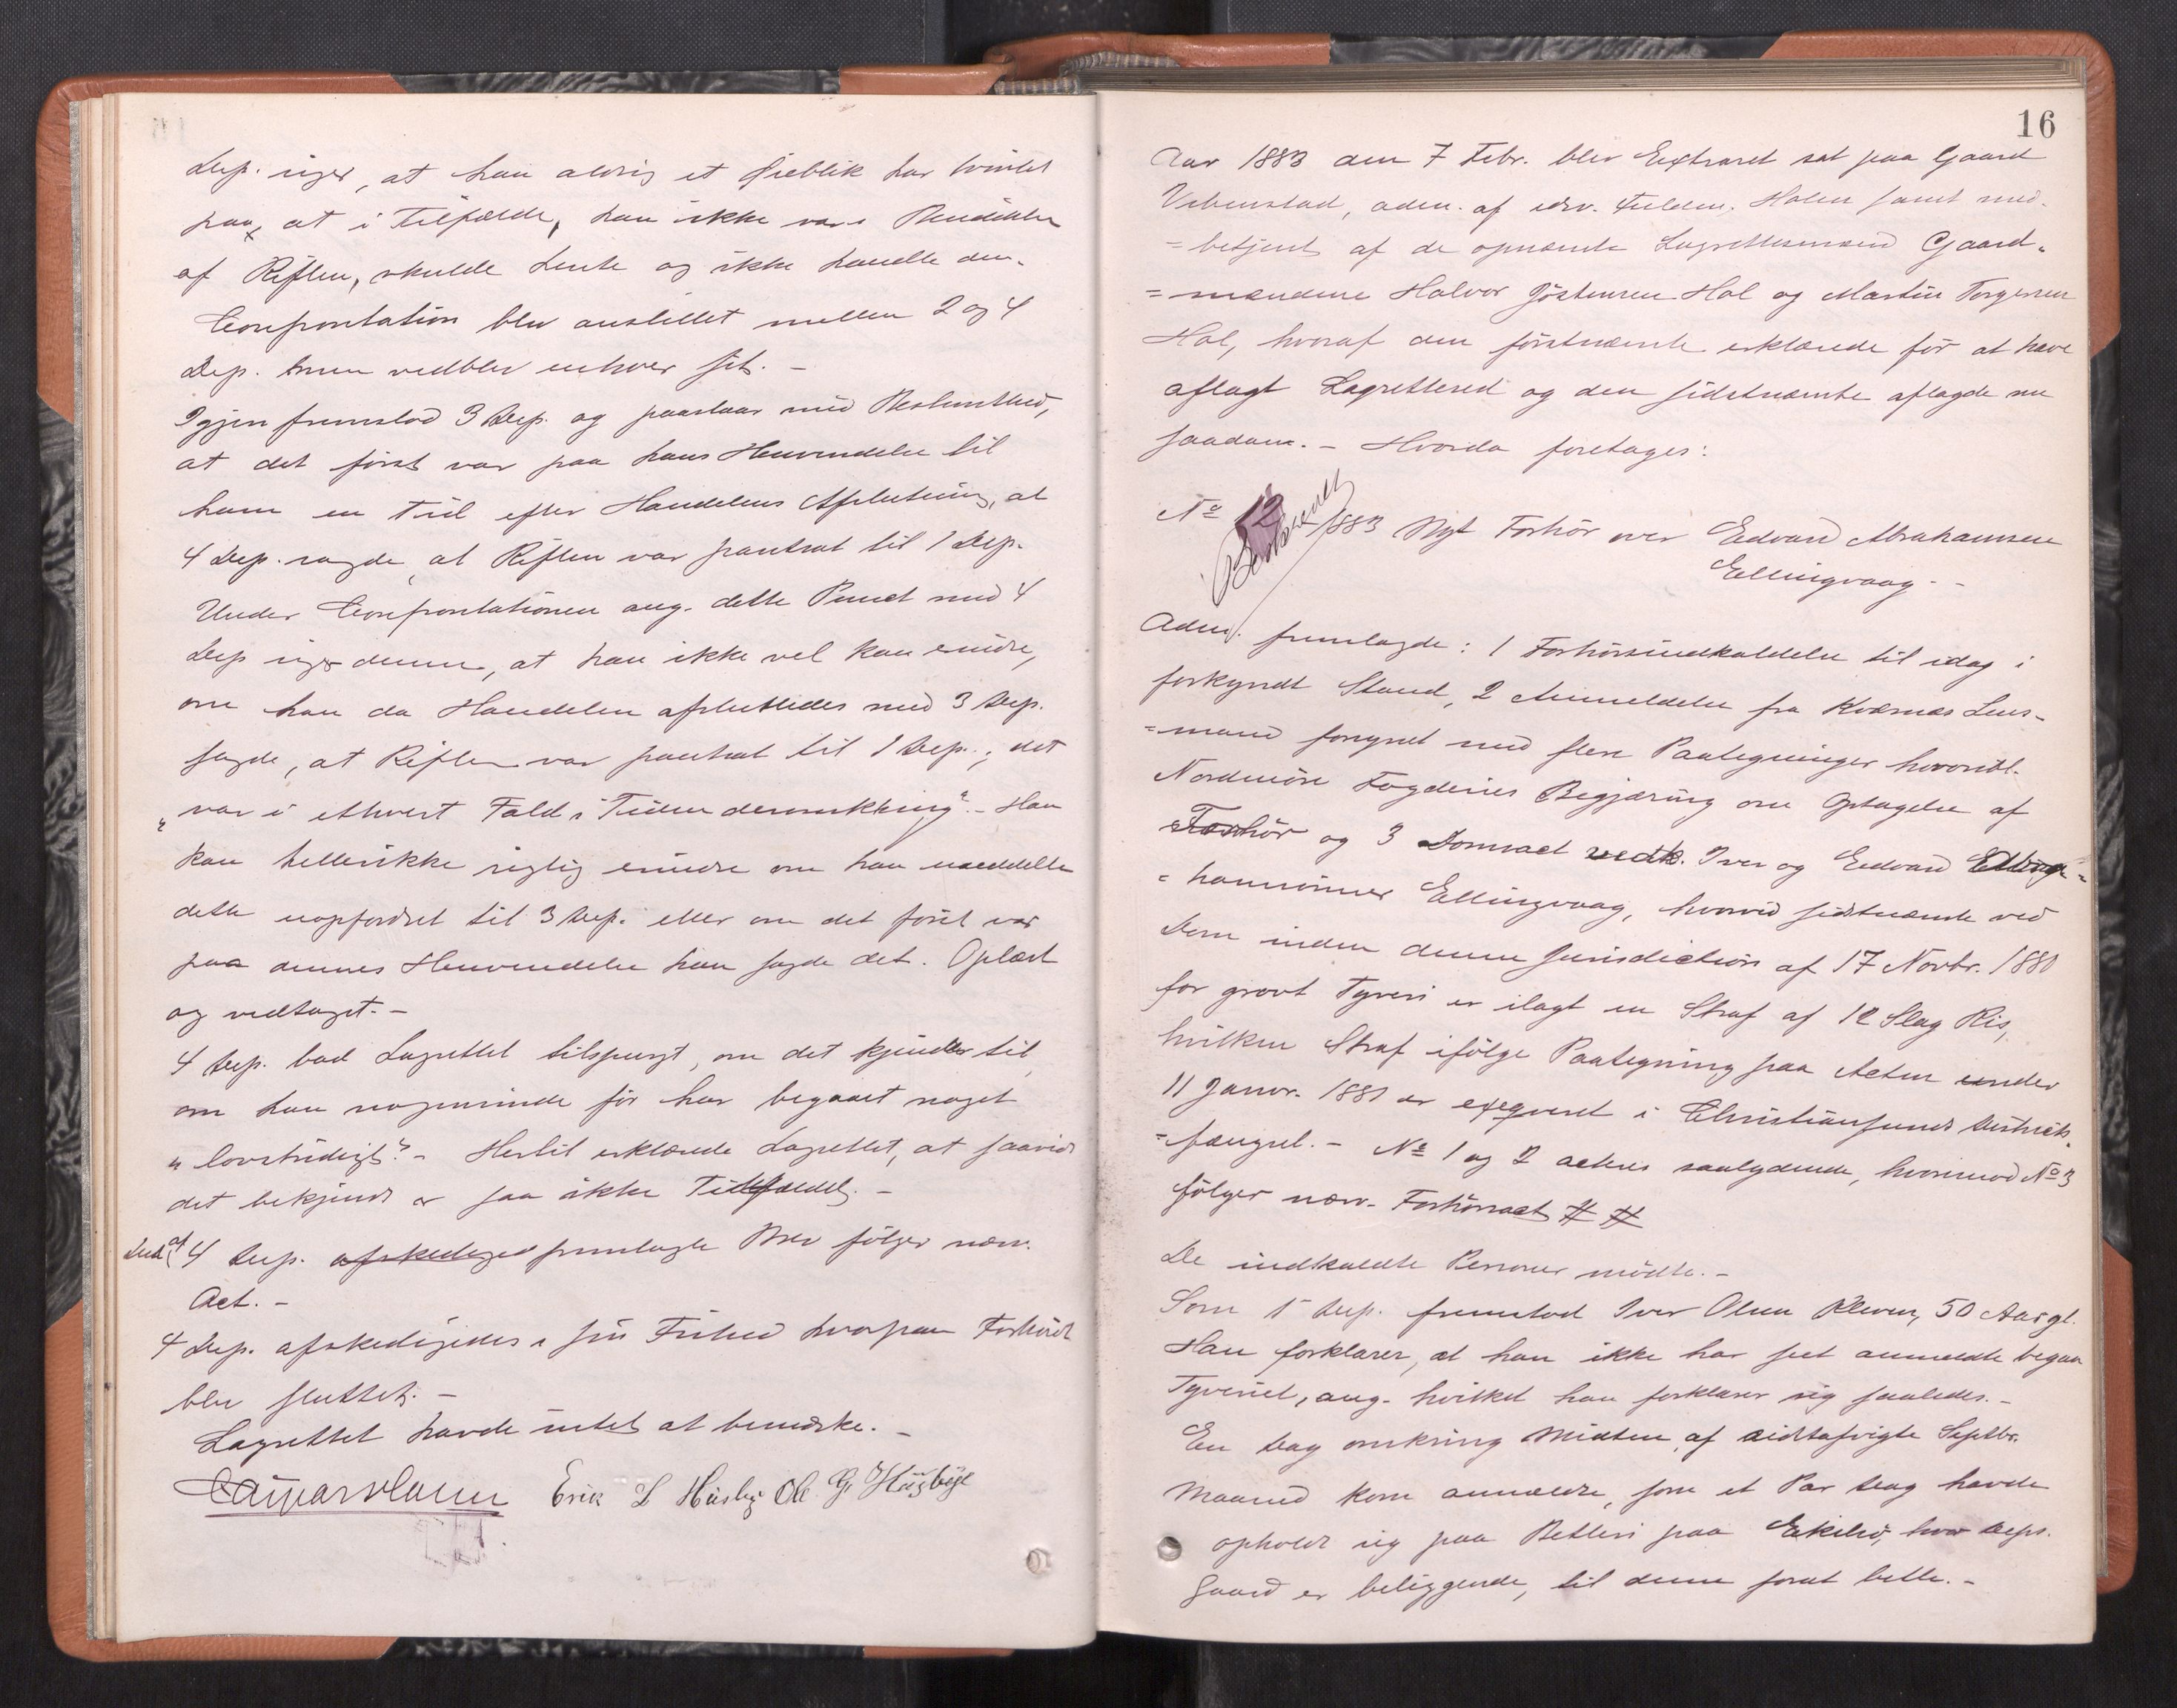 Dep. siger, at han aldrig et Øieblik har tvivlet
paa, at i Tilfælde, han ikke var i Besiddelse
af Riflen, skulde hente og ikke handle den.
Confrontation blev anstillet mellem 2 og 4
Dep. men vedblev enhver sit. -
Igjen fremstod 3 Dep. og paastaar med Bestemthed,
at det først var paa hans Henvendelse til
ham en Tid efter Handelens Afslutning, at
4 Dep. sagde, at Riflen var pantsat til 1 Dep.
Under Confrontationen ang. dette Punct med 4
Dep siger denne, at han ikke vel kan erindre,
om han da Handelen afsluttedes med 3 Dep.
sagde, at Riflen var pantsat til 1 Dep.; det
"var i ethvert Fald i Tiden deromkring". - Han
kan hellerikke rigtig erindre om han meddelte
dette uopfordret til 3 Dep. eller om det først var
paa dennes Henvendelse han sagde det. Oplæst
og vedtaget. -
4 Dep. bad Lagrettet tilspurgt, om det kjender til,
om han nogensinde før har begaaet noget
"lovstridigt". - Hertil erklærede Lagrettet, at saavidt
det bekjendt er saa ikke Tilfældet. -
Det af 4 Dep. afskediges fremlagte Brev følger nærv.
Act. -
4 Dep. afskedigedes i sin Frihed hvorpaa Forhøret
blev sluttet. -
Lagrettet havde intet at bemærke. -
Erik L Husby Ole G. Høgbøge
16
Aar 1883 den 7 Febr. blev Extraret sat paa Gaard
Vebenstad, adm. af edsv. Fuldm. Holm samt med-
=betjent af de opnævnte Lagrettesmænd Gaard-
=mændene Halvor Jøstensen Hol og Martin Torgersen
Hol, hvoraf den førstnævnte erklærede før at have
aflagt Lagretteed og den sidstnævnte aflagde nu
saadan. - Hvorda foretages:
No 2 1883 Nyt Forhør over Edvard Abrahamsen
Ellingvaag. -
Adm. fremlagde: 1 Forhørsindkaldelse til idag i
forkyndt Stand, 2 Anmeldelse fra Kvernes Lens-
=mand forsynet med flere Paategninger hvoribl.
Nordmøre Fogderies Begjæring om Optagelse af
Forhør og 3 Domsact vedk. Iver og Edvard Abra-
=hamsønner Ellingvaag, hvorved sidstnævnte ved
Dom inden denne Jurisdiction af 17 Novbr. 1880
for grovt Tyveri er ilagt en Straf af 12 Slag Ris,
hvilken Straf ifølge Paategning paa Acten under
11 Januar. 1881 er exeqveret i Christiansunds Districts-
=fængsel. - No 1 og 2 acteres saalydende, hvorimod No 3
følger nærv. Forhørsact # #
De indkaldte Personer mødte. -
Som 1 Dep. fremstod Iver Olsen Kleven, 50 Aar gl.
Han forklarer, at han ikke har seet anmeldte begaa
Tyveriet, ang. hvilket han forklarer sig saaledes. -
En Dag omkring Midten af sidstafvigte Septbr.
Maaned kom anmeldte, som et Par Dage havde
opholdt sig paa Betleri paa Ekilsø, hvor Deps.
Gaard er beliggende, til denne forat betle. -